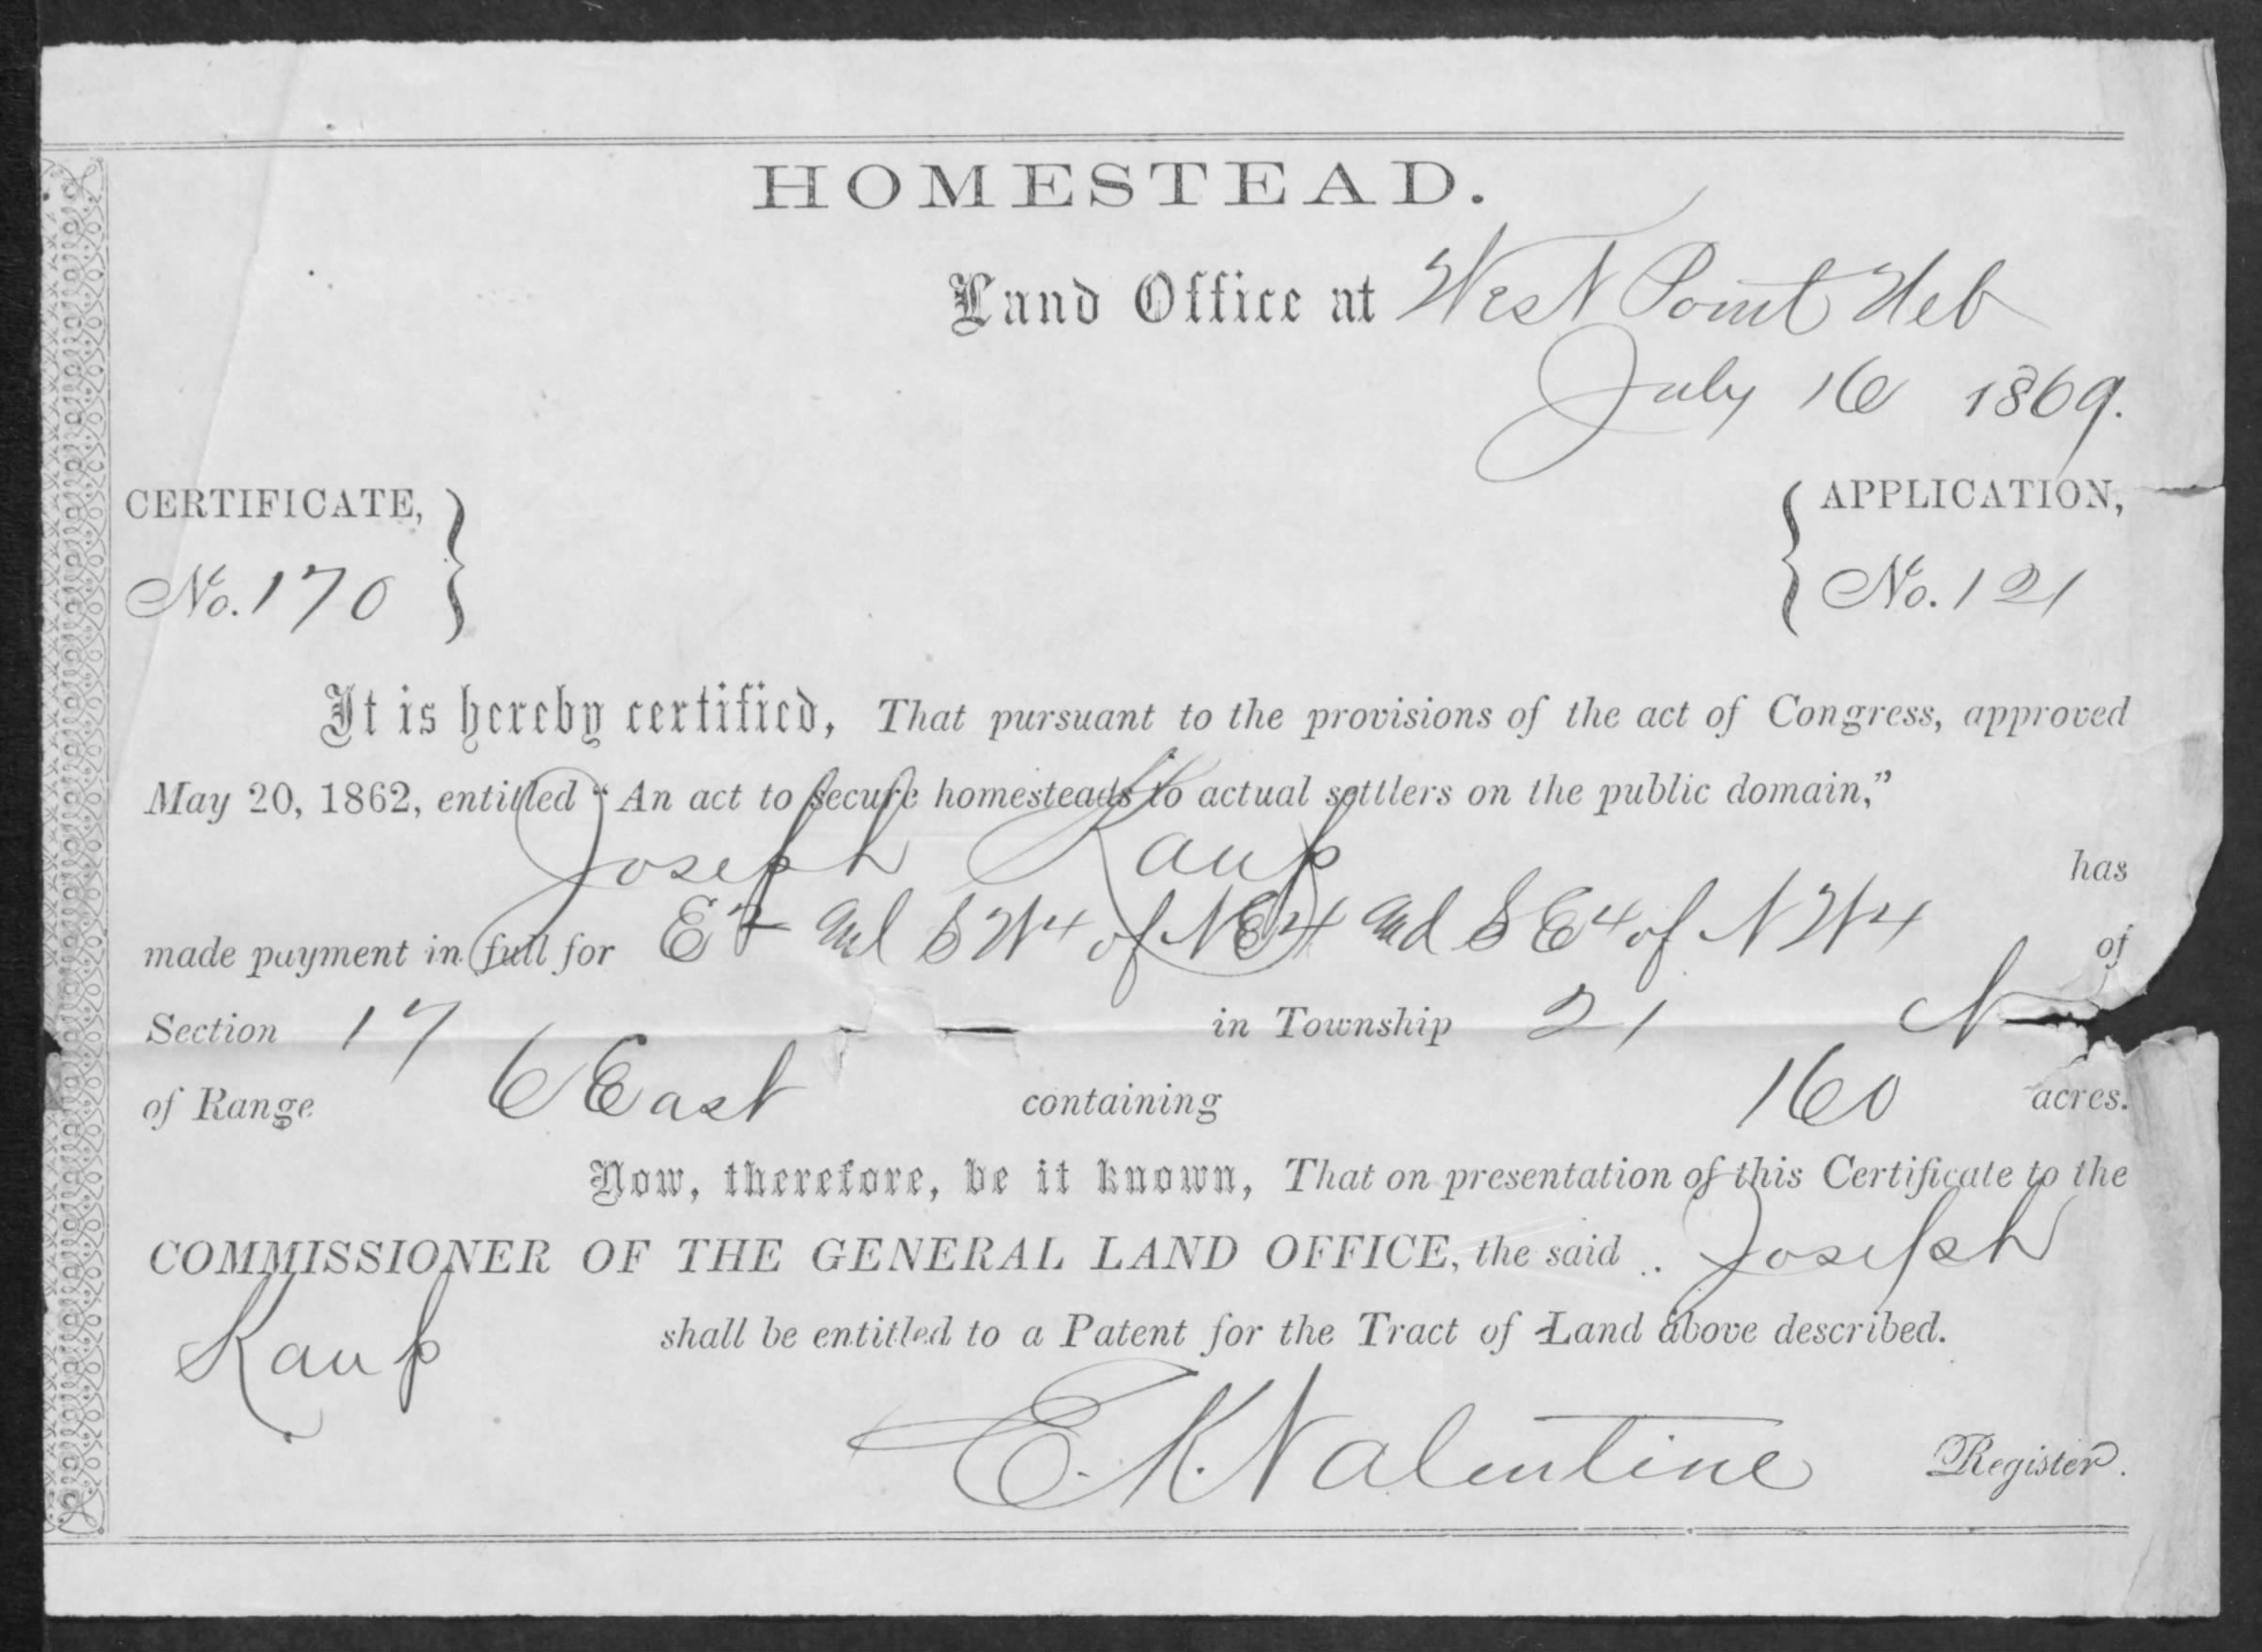 HOMESTEAD.
Land Office at West Point Neb
July 16 1869.
CERTIFICATE,
No. 170
APPLICATION,
No. 121
It is hereby certified, That pursuant to the provisions of the act of Congress, approved
May 20, 1862, entitled “An act to secure homesteads to actual settlers on the public domain,”
Joseph Kaup has
made payment in full for E 2 and SW4 of NE4 and SE4 of NW4 of
Section 17 in Township 21 N
of Range 6 East containing 160 acres.
Now, therefore, be it known, That on presentation of this Certificate to the
COMMISSIONER OF THE GENERAL LAND OFFICE, the said Joseph
Kaup shall be entitled to a Patent for the Tract of Land above described.
E. K. Valentine Register.